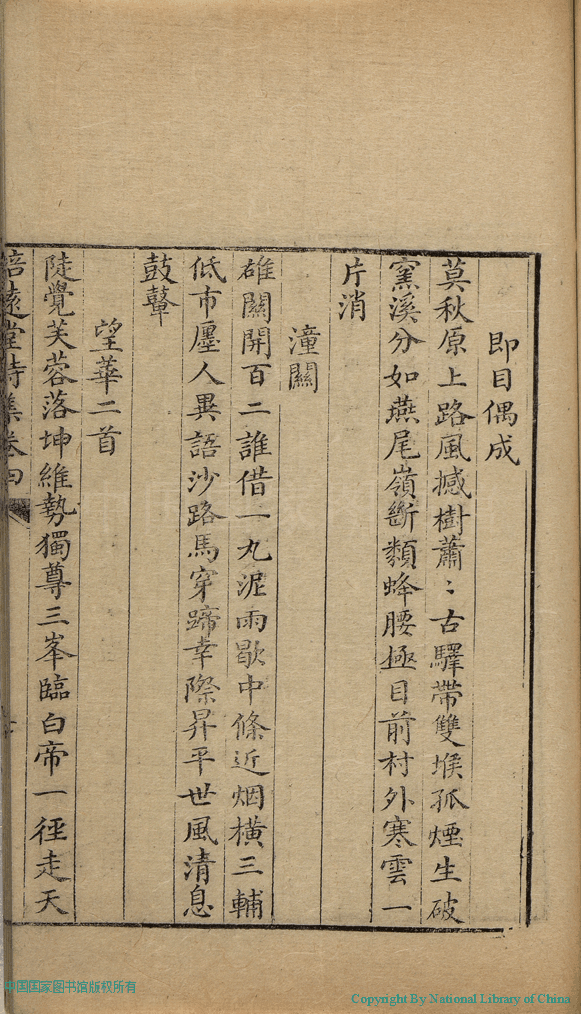 即目偶成
莫秋原上路風撼樹蕭〻古驛帶雙堠孤煙生破
窯溪分如燕尾嶺斷類蜂腰極目前村外寒雲一
片消
潼關
雄關開百二誰借一丸泥雨歇中條近烟橫三輔
低市廛人異語沙路馬穿蹄幸際昇平世風清息
鼓鼙
望華二首
陡覺芙蓉落坤維勢獨尊三峯臨白帝一徑走天
培遠堂詩集卷四
中国国家图书馆版权所有
Copyright By National Library of China